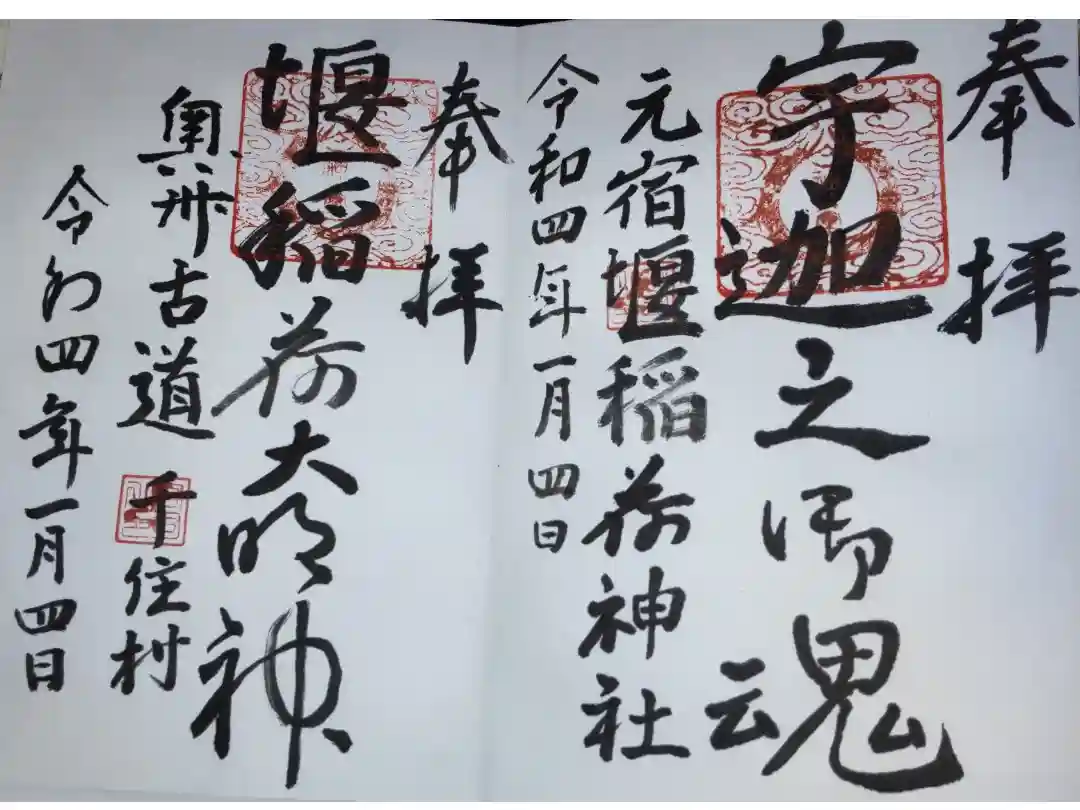 奉拝
宇迦之御魂
元宿堰稲荷神社
令和四年一月四日
奉拝
堰稲荷大明神
奥州古道 千住村
令和四年一月四日